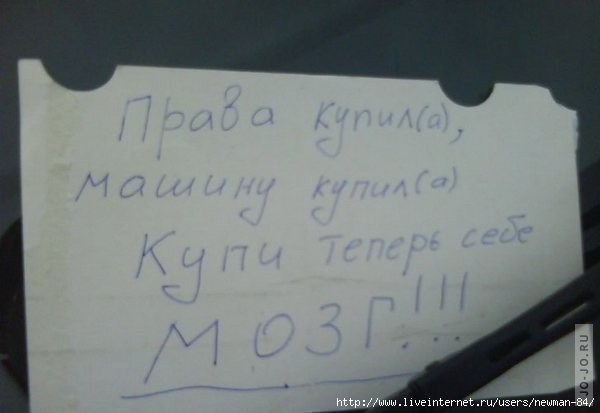 Права купил(а),
машину купил(а)
Купи теперь себе
МОЗГ!!!
JO-JO.RU
http://www.liveinternet.ru/users/newman-84/